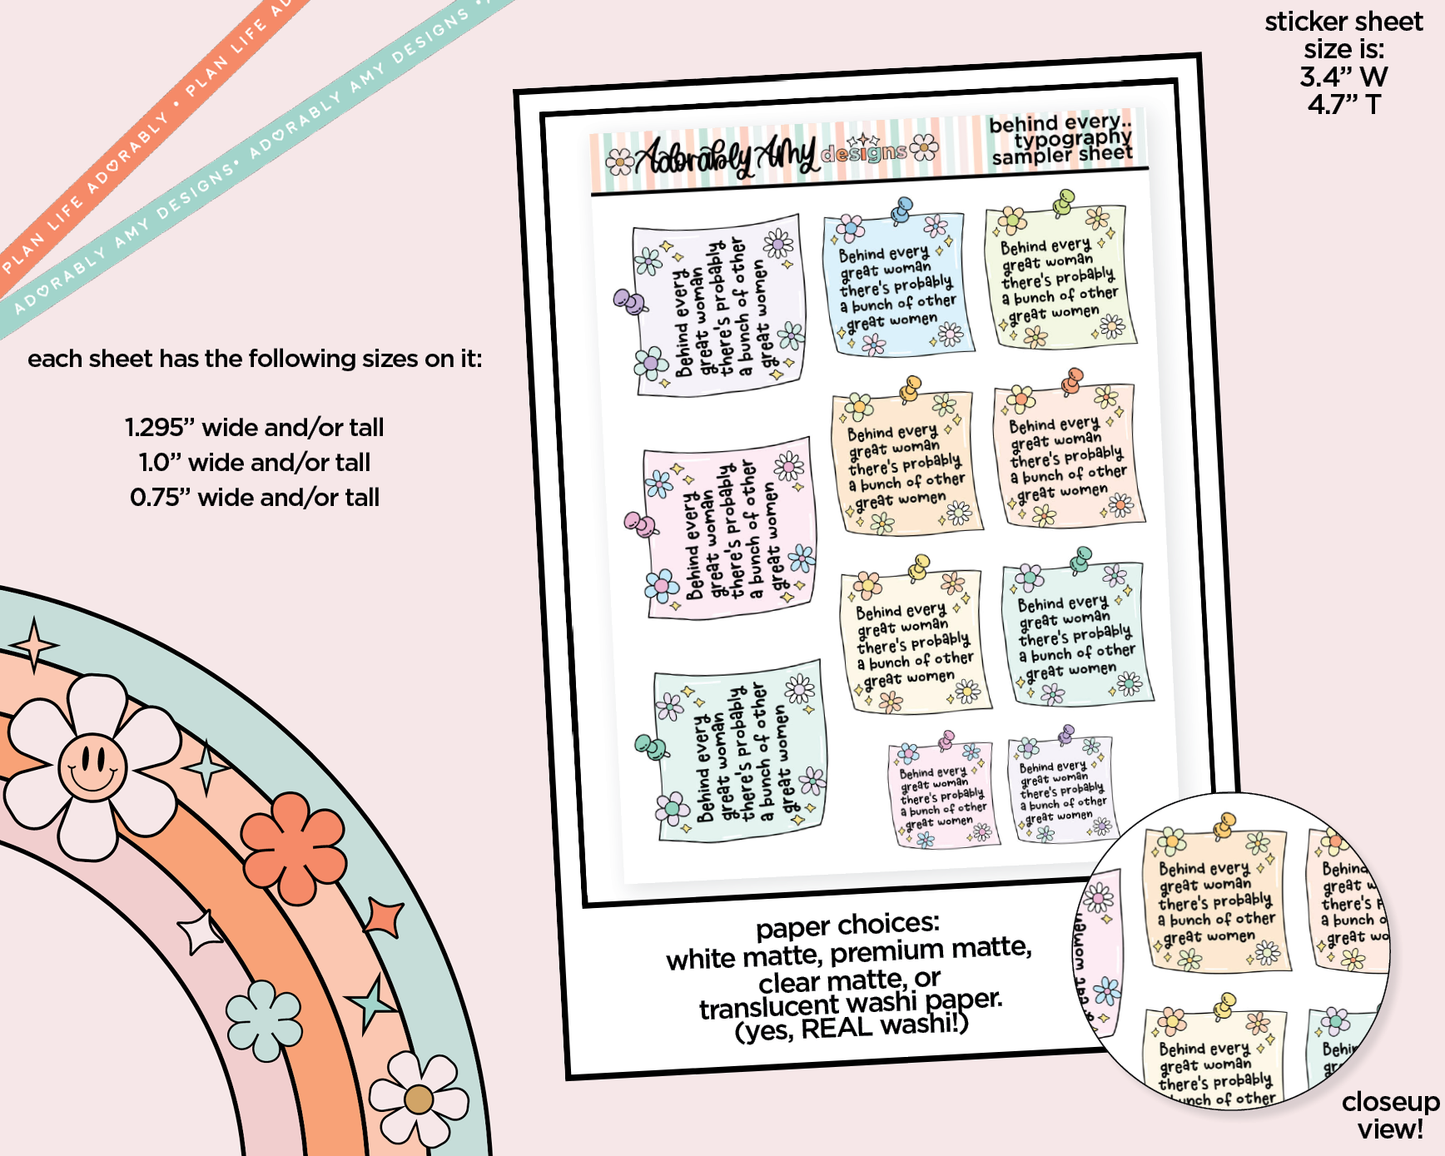 PLAN LIFE ADORABLY • PLAN LIFE AD
ADORABLY AMY DESIGNS • ADORABLY AMY DESIGNS •
sticker sheet
size is:
3.4” W
4.7” T
each sheet has the following sizes on it:
1.295” wide and/or tall
1.0” wide and/or tall
0.75” wide and/or tall
Adorably Amy designs
behind every..
typography
sampler sheet
Behind every
great woman
there's probably
a bunch of other
great women
Behind every
great woman
there's probably
a bunch of other
great women
Behind every
great woman
there's probably
a bunch of other
great women
Behind every
great woman
there's probably
a bunch of other
great women
Behind every
great woman
there's probably
a bunch of other
great women
Behind every
great woman
there's probably
a bunch of other
great women
Behind every
great woman
there's probably
a bunch of other
great women
Behind every
great woman
there's probably
a bunch of other
great women
Behind every
great woman
there's probably
a bunch of other
great women
Behind every
great woman
there's probably
a bunch of other
great women
Behind every
great woman
there's probably
a bunch of other
great women
paper choices:
white matte, premium matte,
clear matte, or
translucent washi paper.
(yes, REAL washi!)
women
Behind every
great woman
there's probably
a bunch of other
great women
Behind
great w
there's p
a bunch o
great wo
Behind every
great woman
there's probably
bunch of other
Behin
great
there
closeup
view!